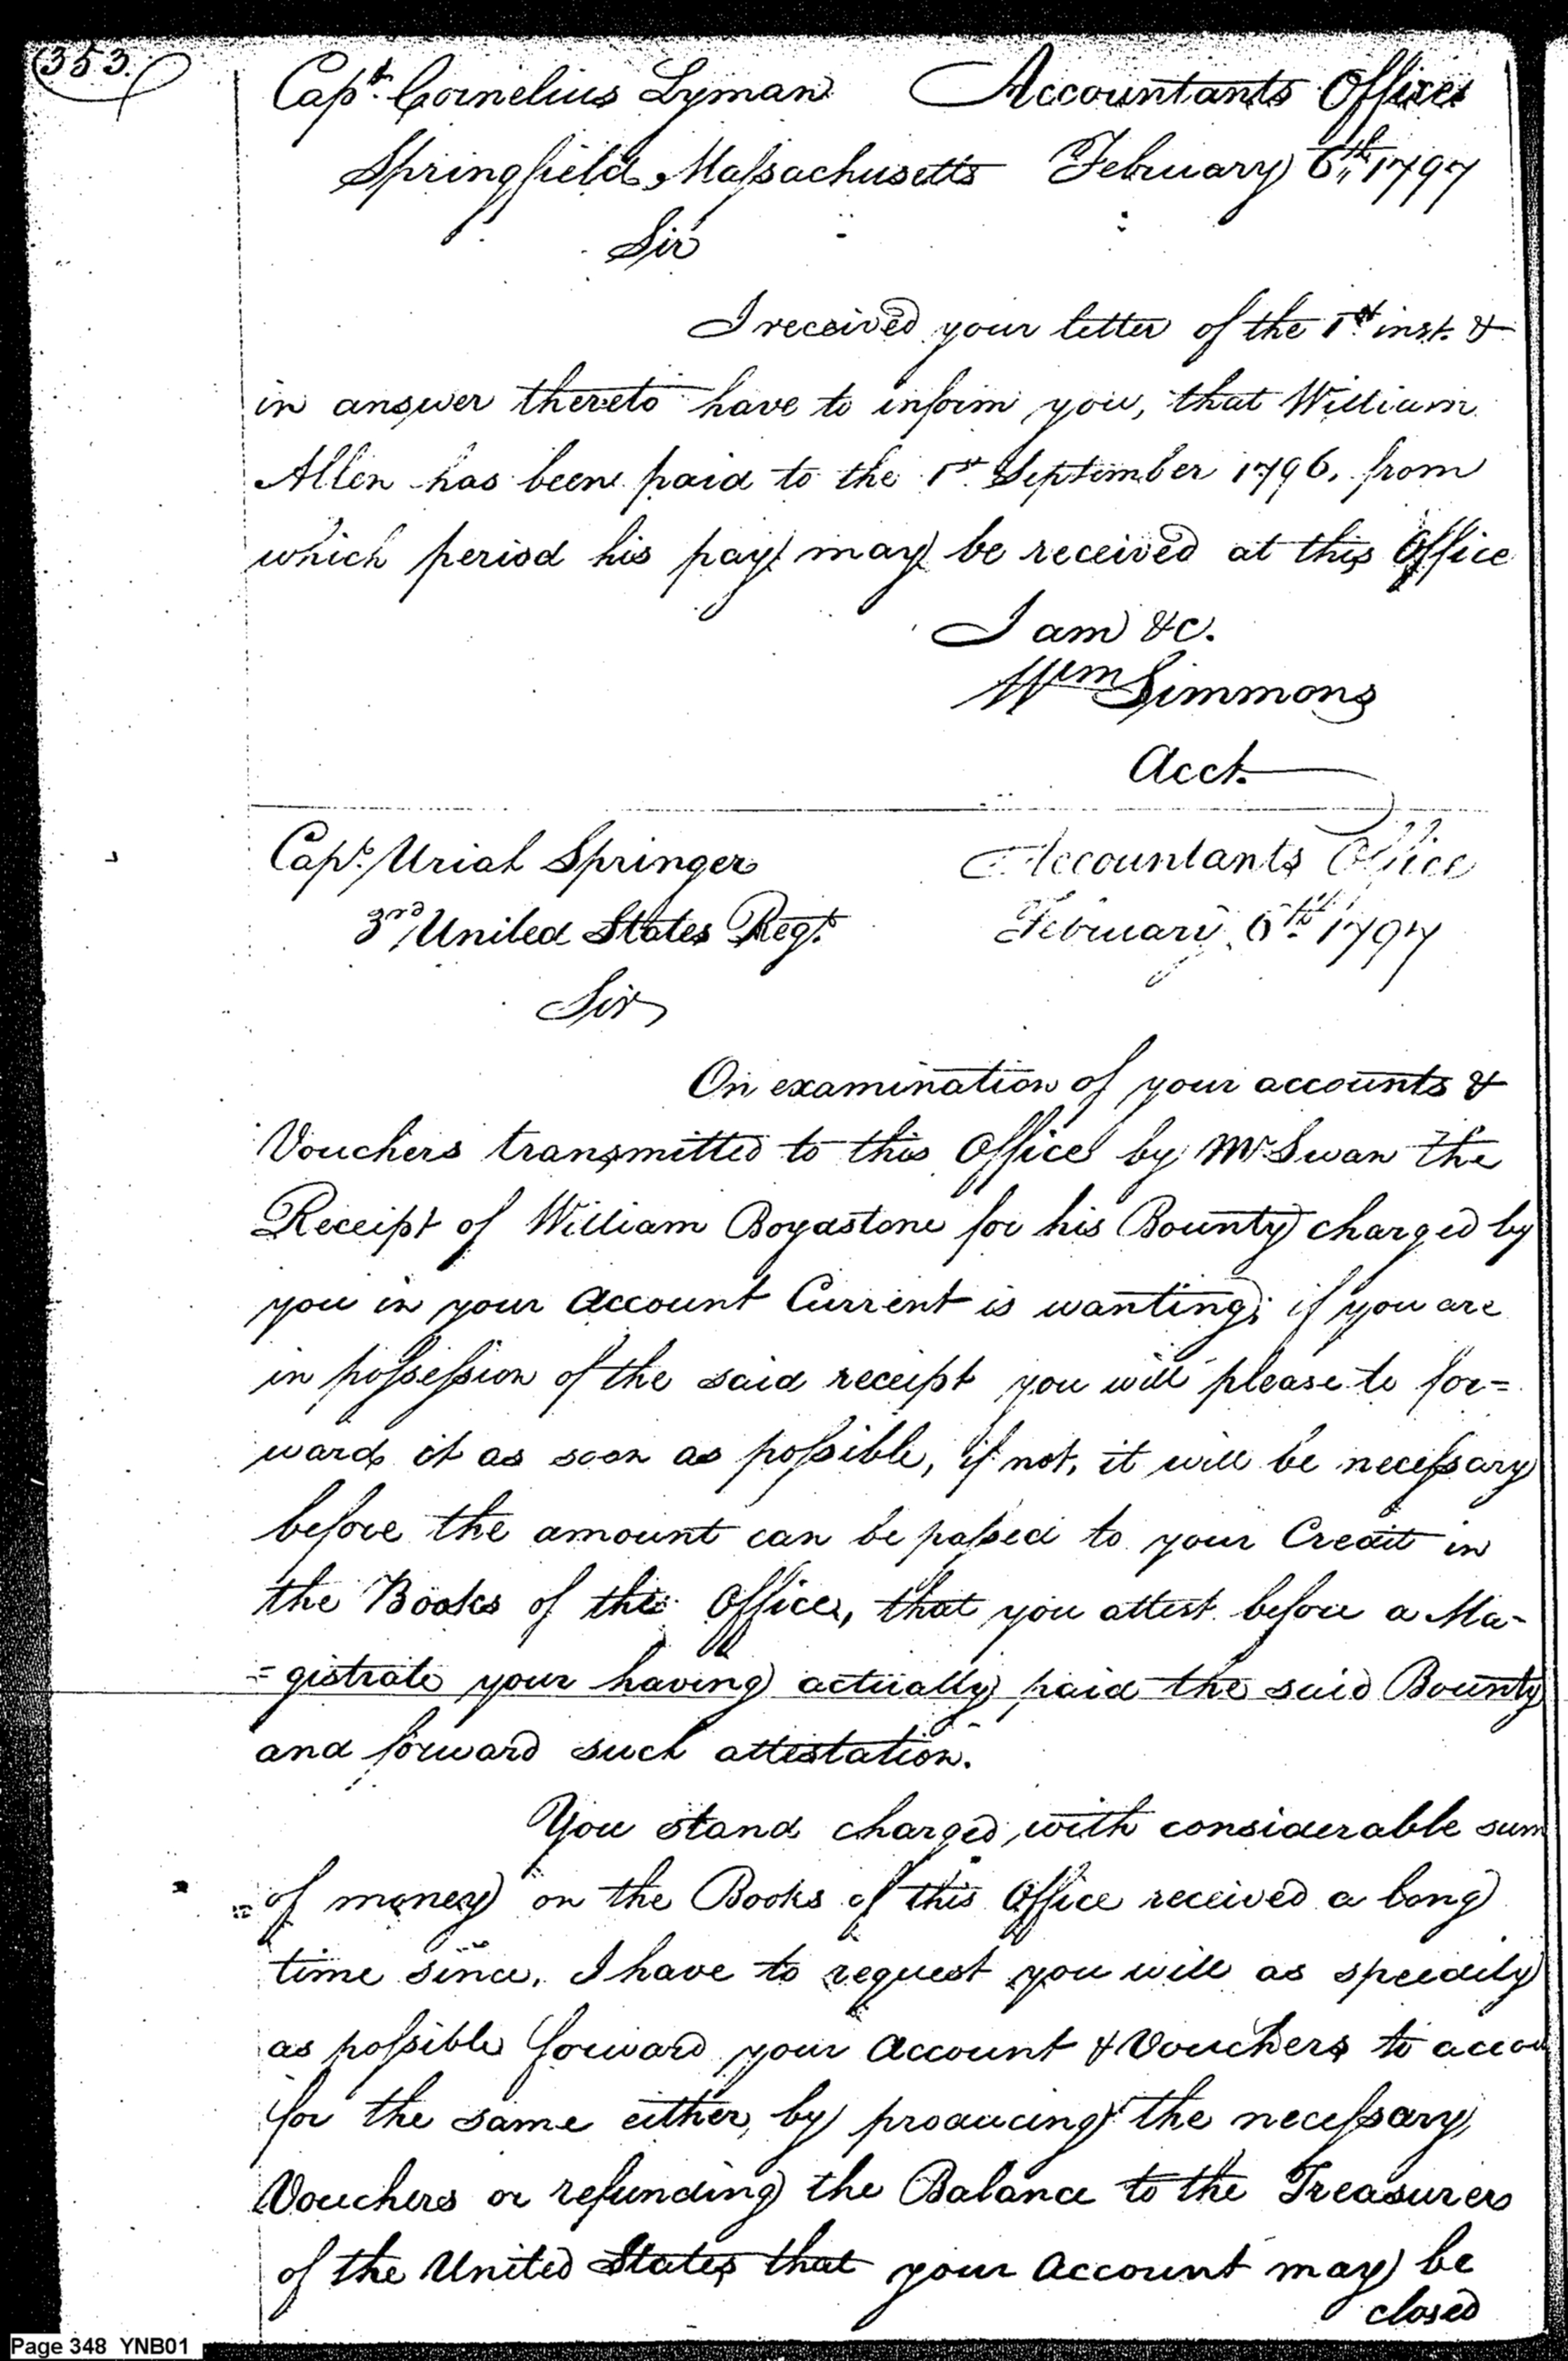 353.
Capt. Cornelius Lyman Accountants Office
Springfield, Massachusetts February 6th 1797
Sir
I received your letter of the 1st inst. &
in answer thereto have to inform you, that William
Allen has been paid to the 1st September 1796, from
which period his pay may be received at this Office
I am &c.
Wm Simmons
Acct.
Capt. Uriah Springer Accountants Office
3rd United States Regt. February 6th 1797
Sir
On examination of your accounts &
Vouchers transmitted to this Office by Mr Swan the
Receipt of William Boydstone for his Bounty charged by
you in your Account Current is wanting; if you are
in possession of the said receipt you will please to for=
ward it as soon as possible, if not, it will be necessary
before the amount can be passed to your Credit in
the Books of the Office, that you attest before a Ma-
=gistrate your having actually paid the said Bounty
and forward such attestation.
You stand charged with considerable sum
of money on the Books of this Office received a long
time since, I have to request you will as speedily
as possible forward your Account & Vouchers to accou
for the same either by producing the necessary
Vouchers or refunding the Balance to the Treasurer
of the United States that your Account may be
closed
Page 348 YNB01